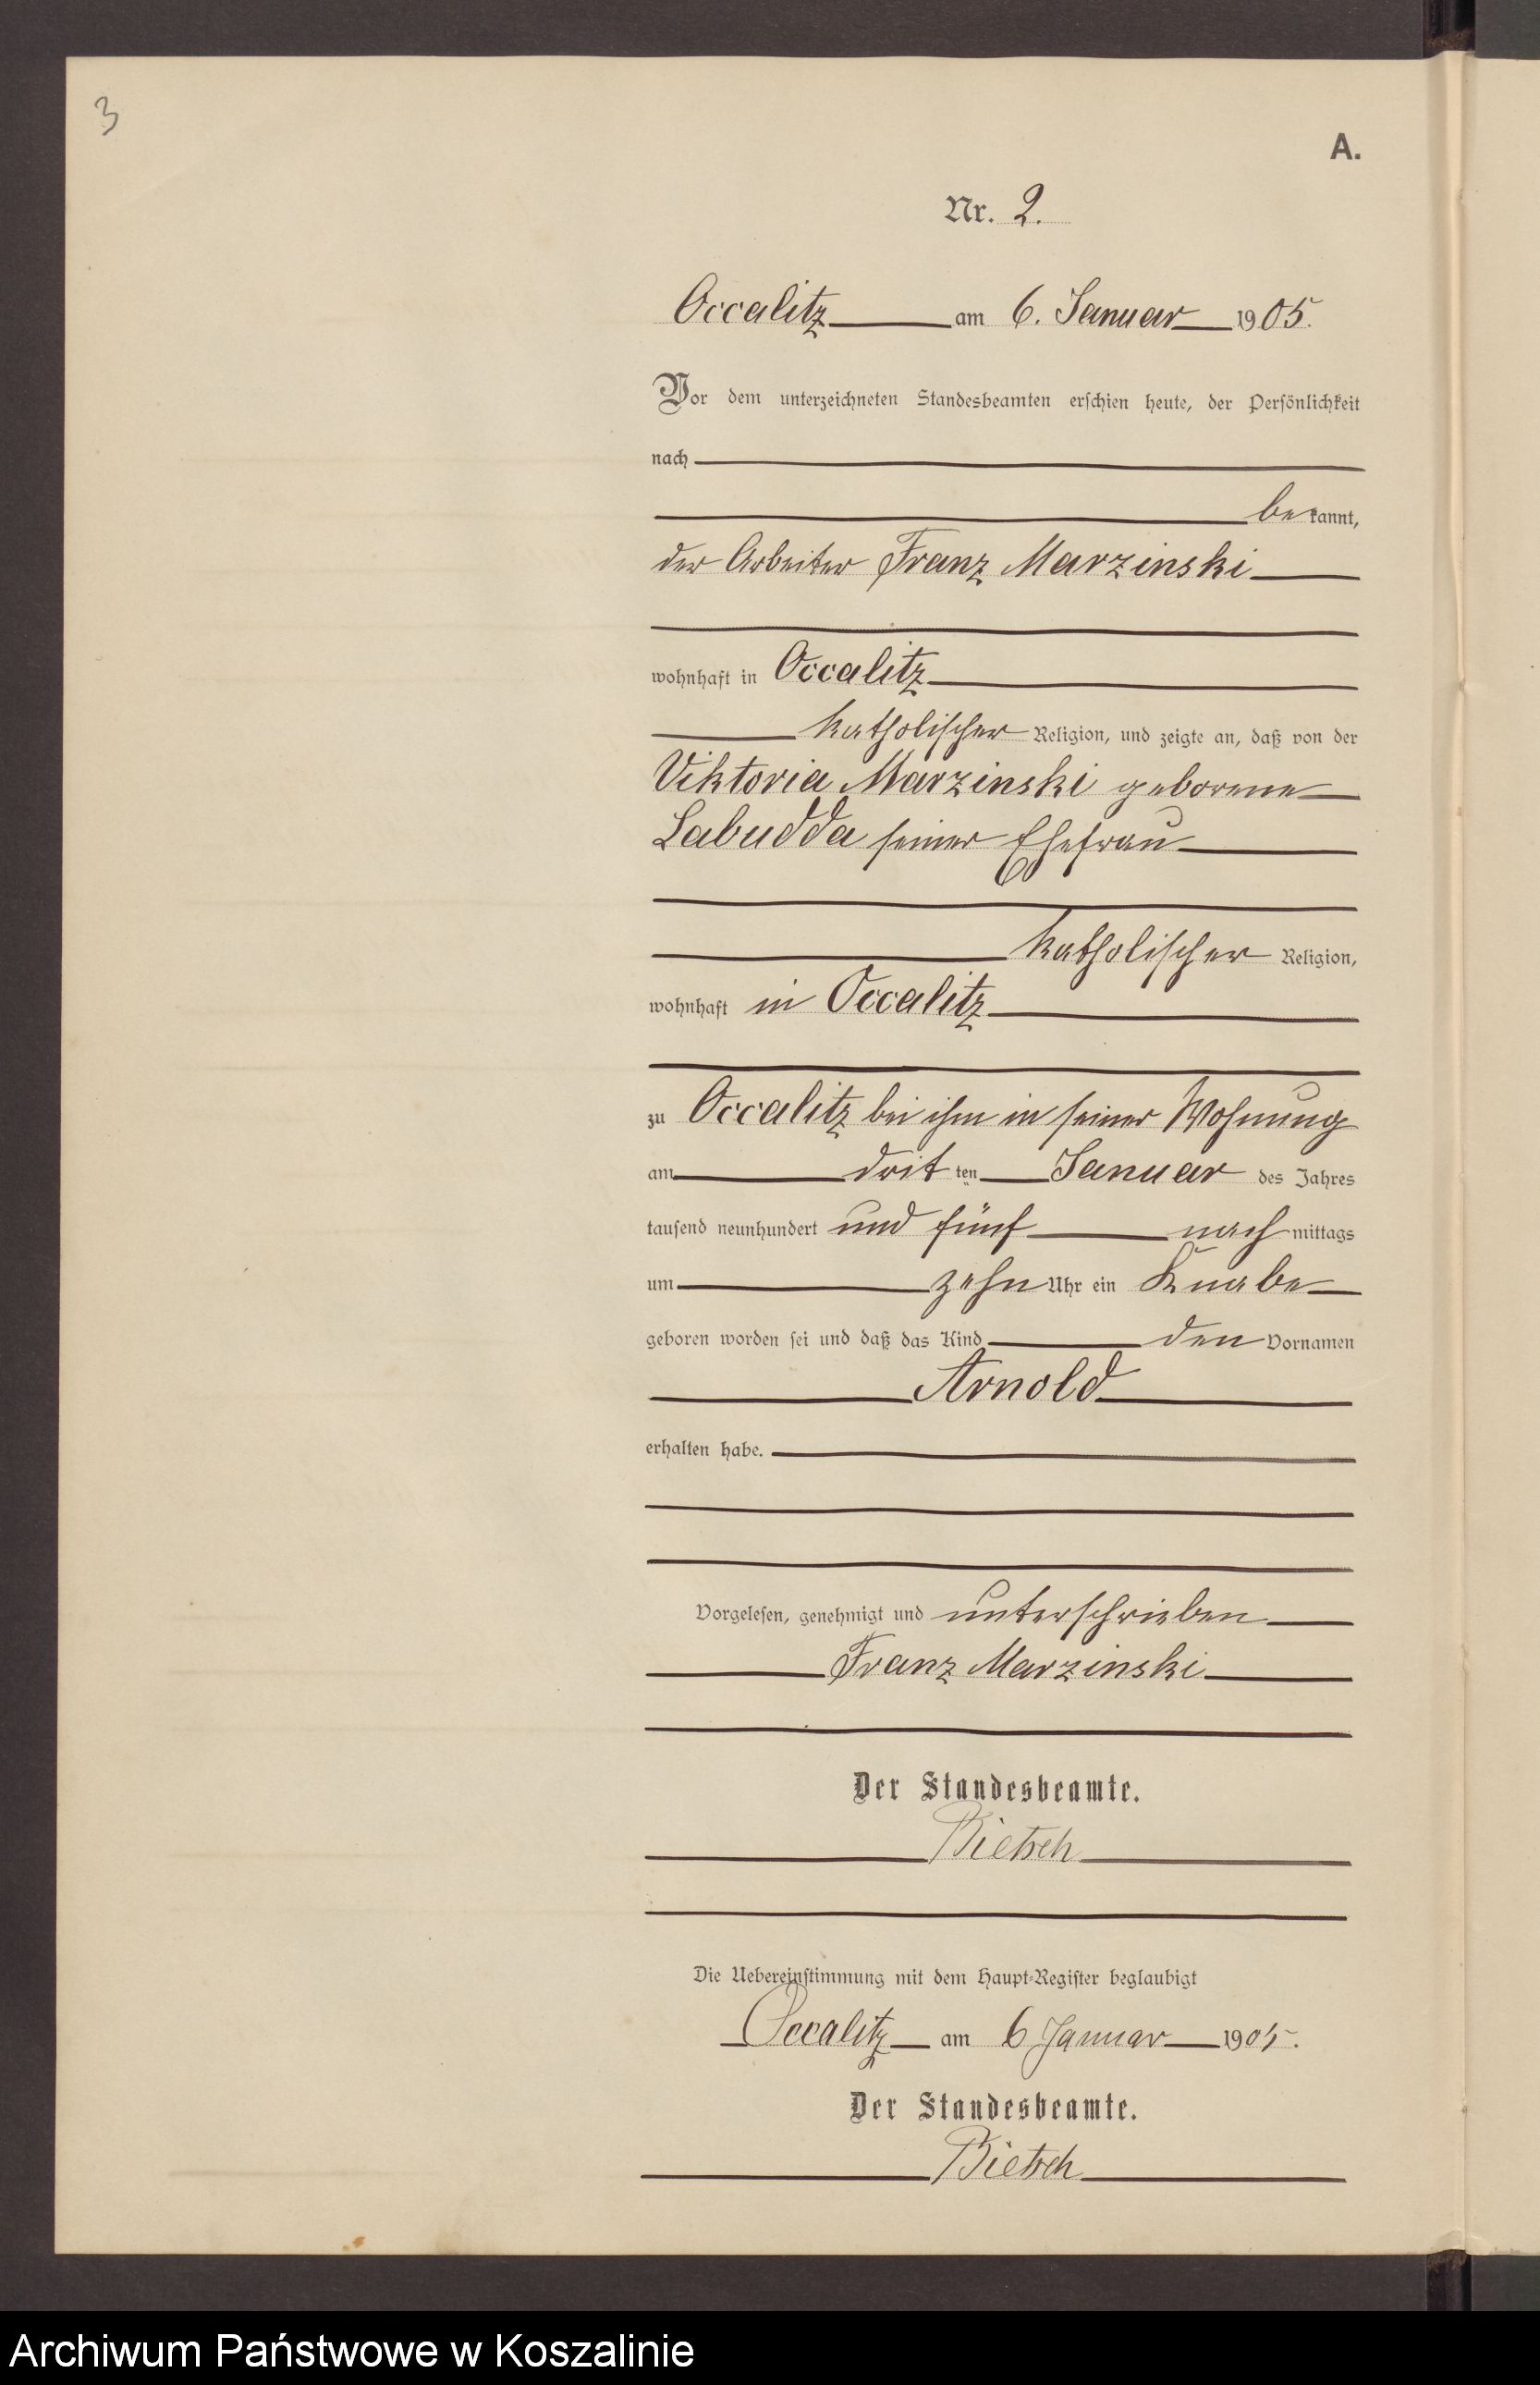 3
A.
Nr. 2.
Occalitz am 6. Januar 1905.
Vor dem unterzeichneten Standesbeamten erschien heute, der Persönlichkeit
nach
bekannt,
der Arbeiter Franz Marzinski
wohnhaft in Occalitz
katholischer Religion, und zeigte an, daß von der
Viktoria Marzinski geborene
Labudda seiner Ehefrau
katholischer Religion,
wohnhaft in Occalitz
zu Occalitz bei ihm in seiner Wohnung
am dritten Januar des Jahres
tausend neunhundert und fünf nachmittags
um zehn Uhr ein Knabe
geboren worden sei und daß das Kind den Vornamen
Arnold
erhalten habe.
Vorgelesen, genehmigt und unterschrieben
Franz Marzinski
Der Standesbeamte.
Bietsch
Die Uebereinstimmung mit dem Haupt-Register beglaubigt
Occalitz am 6 Januar 1905.
Der Standesbeamte.
Bietsch
Archiwum Państwowe w Koszalinie